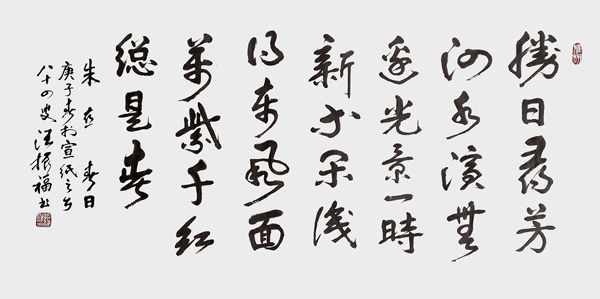 勝日尋芳
泗水濱無
邊光景一時
新等閑識
得東風面
萬紫千紅
總是春
朱熹 春日
庚子春於宣紙之鄉
八十四叟汪振福书